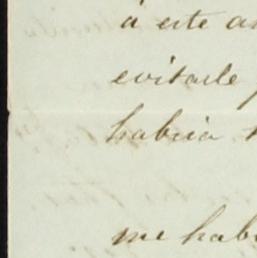 á este
evitarle
habria
me hab